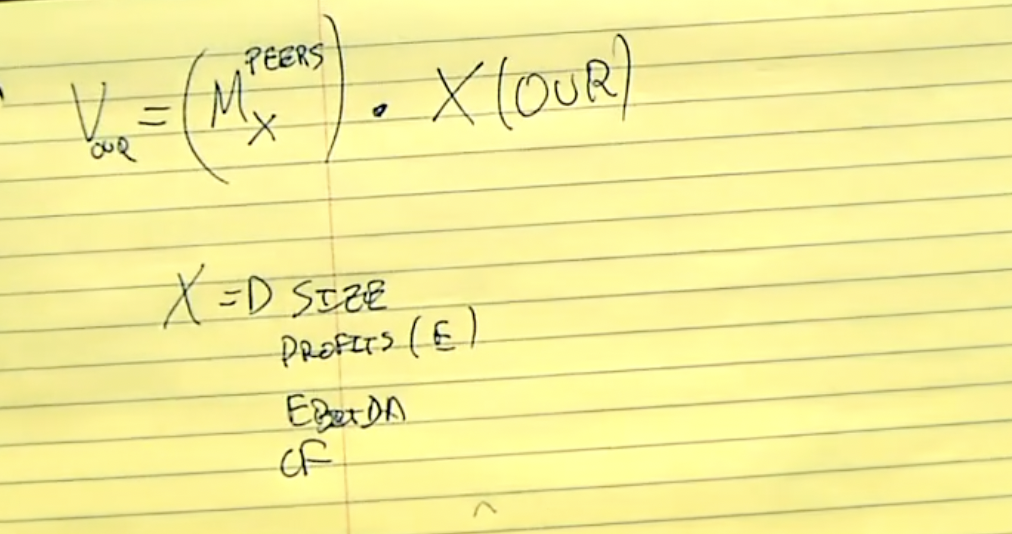 V_OUR = (M_X^PEERS) · X(OUR)
X => SIZE
PROFITS (E)
EBITDA
CF